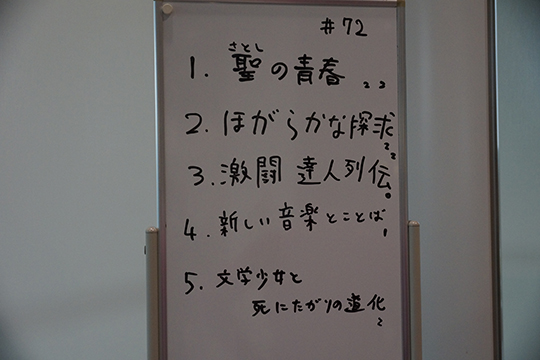 #72
さとし
1. 聖の青春 22
2. ほがらかな探求 22
3. 激闘 達人列伝 0
4. 新しい音楽とことば 1
5. 文学少女と
死にたがりの道化 2